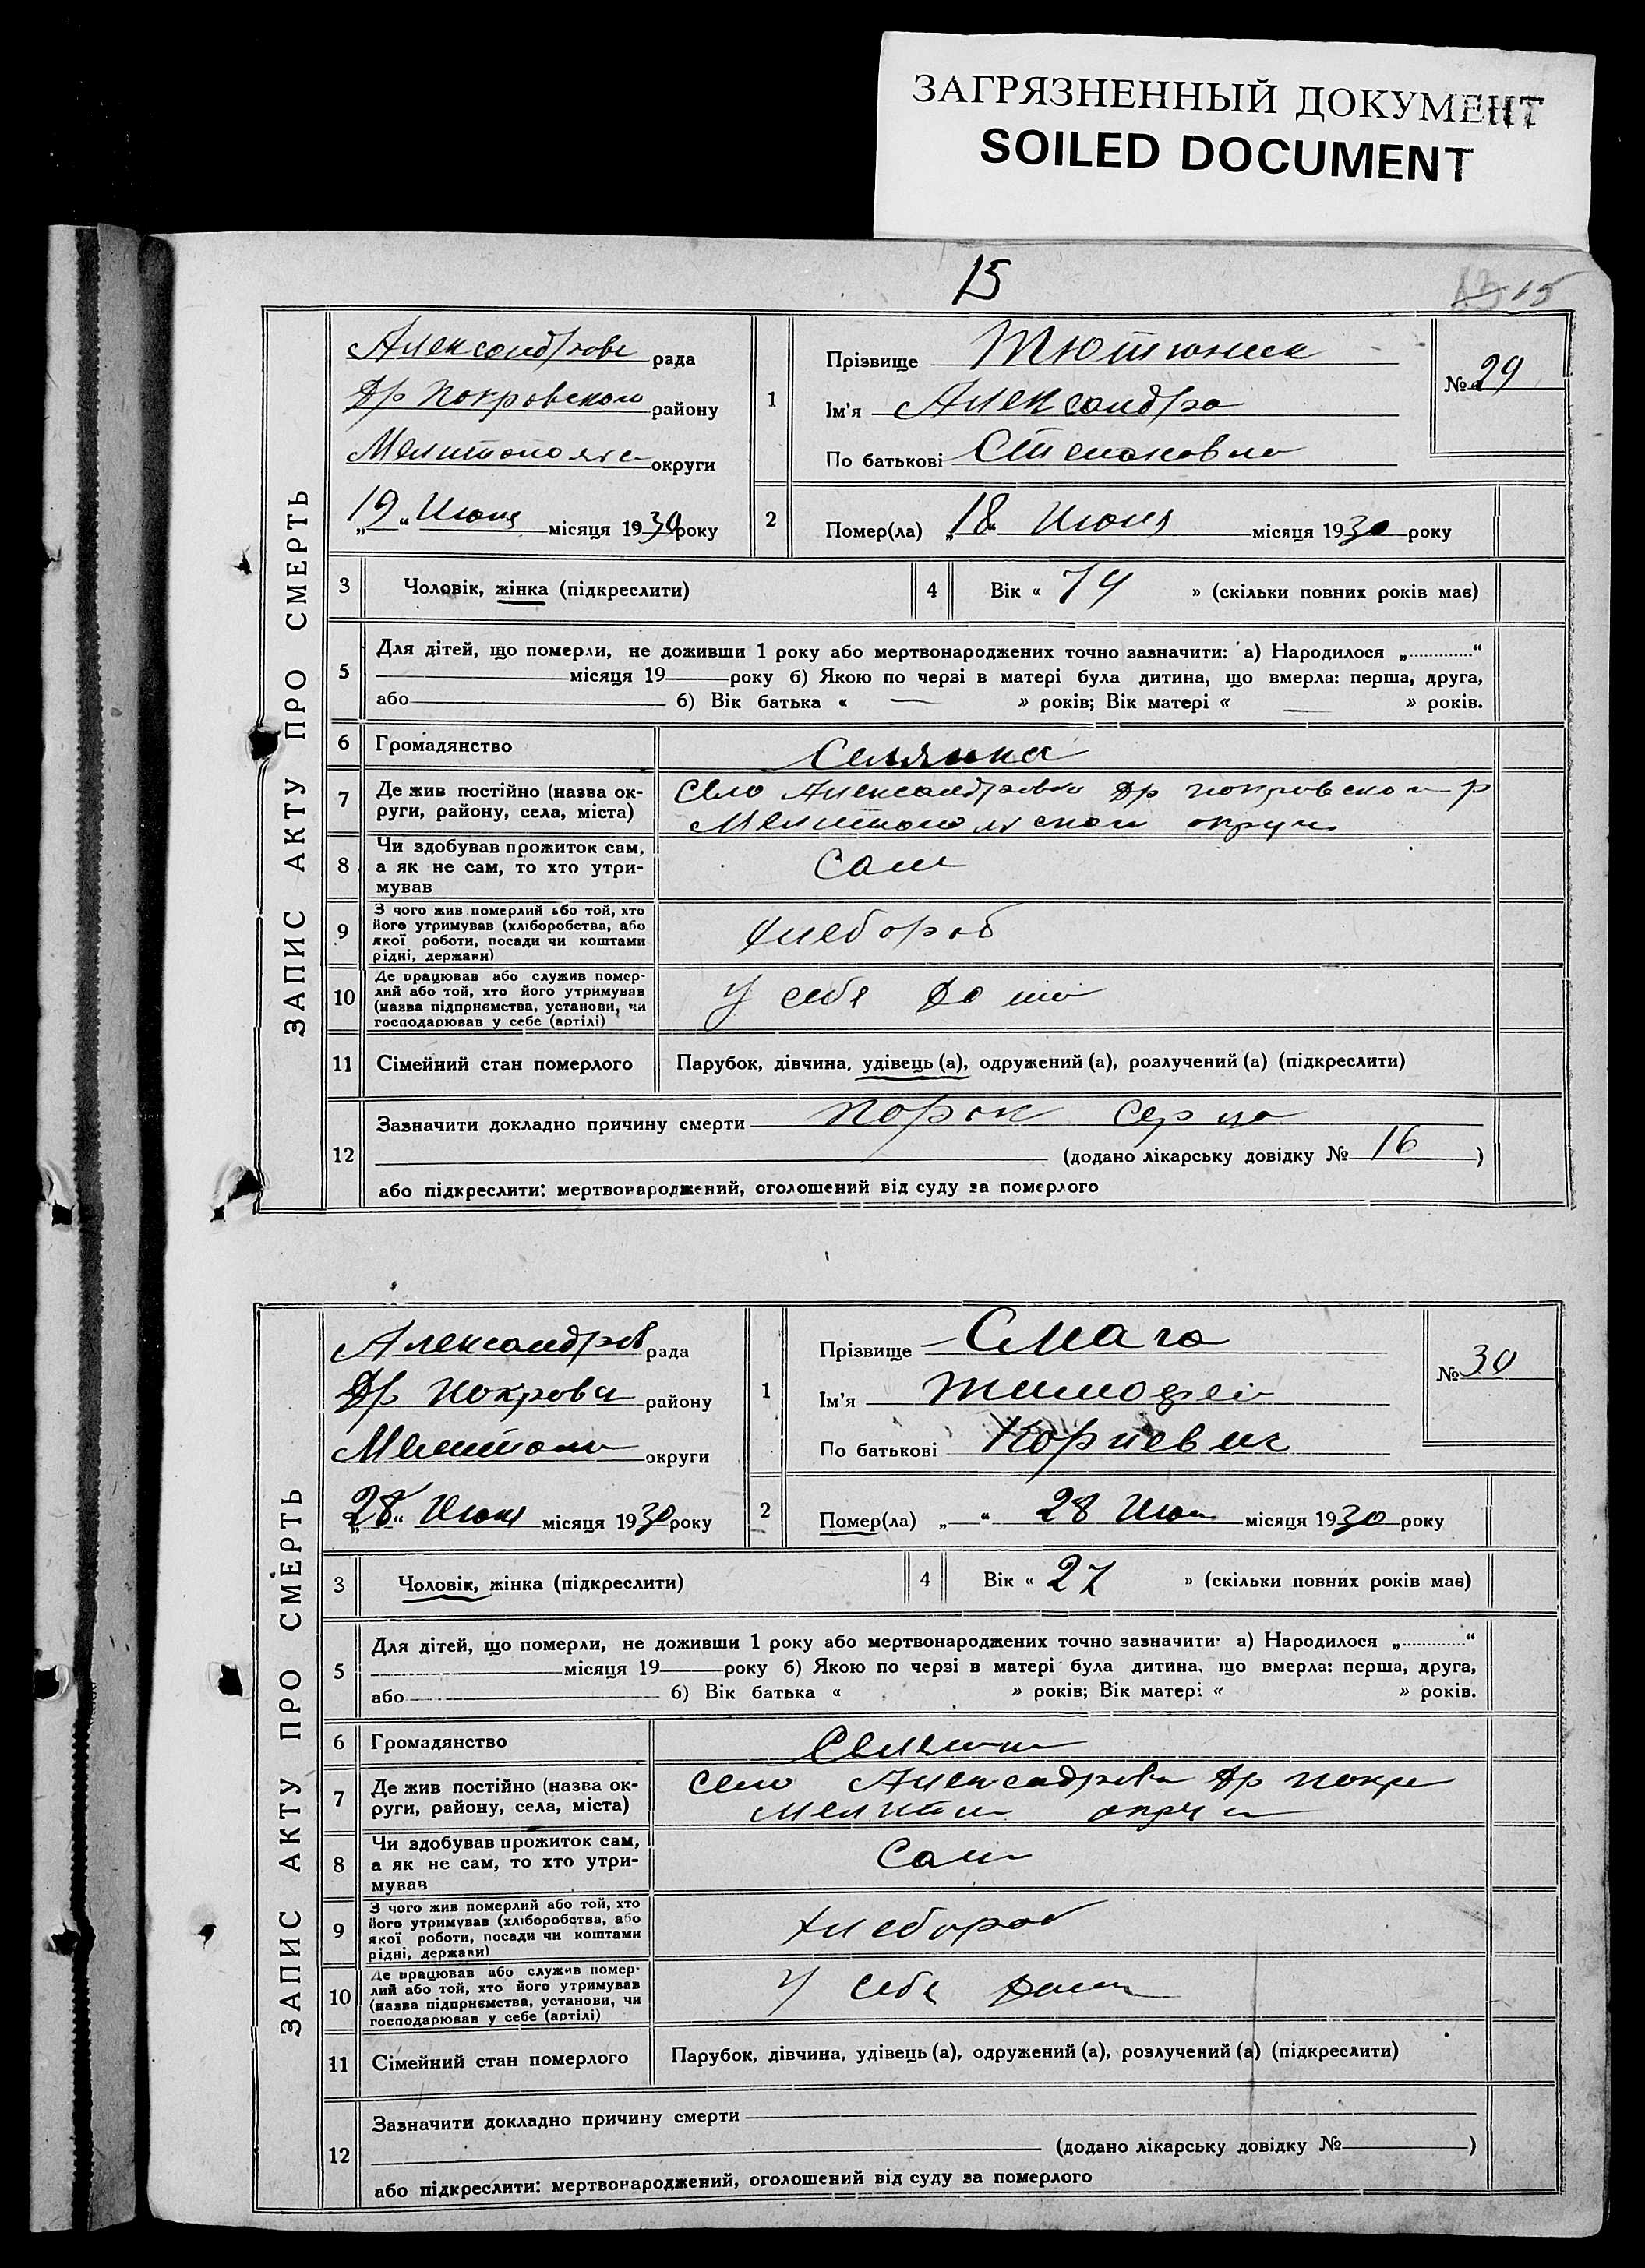 ЗАГРЯЗНЕННЫЙ ДОКУМЕНТ
SOILED DOCUMENT
15
15
ЗАПИС АКТУ ПРО СМЕРТЬ
Александрове рада
Др Покровского району
округи
„19“ Июня місяця 1930 року
1
Прізвище Тютюник
Ім'я Александра
По батькові Степановна
№ 29
2
Помер(ла) „18“ Июня місяця 1930 року
3 Чоловік, жінка (підкреслити)
4 Вік « 74 » (скільки повних років має)
5 Для дітей, що померли, не доживши 1 року або мертвонароджених точно зазначити: а) Народилося „ “
місяця 19 року б) Якою по черзі в матері була дитина, що вмерла: перша, друга,
або б) Вік батька « — » років; Вік матері « — » років.
6 Громадянство Селянка
7 Де жив постійно (назва ок-
руги, району, села, міста)
Село Александровка Др Покровского р
Мелитопольской округи
8 Чи здобував прожиток сам,
а як не сам, то хто утри-
мував
Сам
9 З чого жив померлий або той, хто
його утримував (хліборобства, або
якої роботи, посади чи коштами
рідні, держави)
хлебороб
10 Де працював або служив помер-
лий або той, хто його утримував
(назва підприємства, установи, чи
господарював у себе (артілі)
У себя дома
11 Сімейний стан померлого Парубок, дівчина, удівець (а), одружений (а), розлучений (а) (підкреслити)
12 Зазначити докладно причину смерти порок серца
(додано лікарську довідку № 16 )
або підкреслити: мертвонароджений, оголошений від суду за померлого
ЗАПИС АКТУ ПРО СМЕРТЬ
Александров рада
Др Покрова району
округи
„28“ Июня місяця 1930 року
1
Прізвище Смага
Ім'я Тимофей
По батькові Корневич
№ 30
2
Помер(ла) „ “ 28 Июн місяця 1930 року
3 Чоловік, жінка (підкреслити)
4 Вік « 27 » (скільки повних років має)
5 Для дітей, що померли, не доживши 1 року або мертвонароджених точно зазначити: а) Народилося „ “
місяця 19 року б) Якою по черзі в матері була дитина, що вмерла: перша, друга,
або б) Вік батька « » років; Вік матері « » років.
6 Громадянство
7 Де жив постійно (назва ок-
руги, району, села, міста)
Село Др Покр
8 Чи здобував прожиток сам,
а як не сам, то хто утри-
мував
Сам
9 З чого жив померлий або той, хто
його утримував (хліборобства, або
якої роботи, посади чи коштами
рідні, держави)
хлебороб
10 Де працював або служив помер-
лий або той, хто його утримував
(назва підприємства, установи, чи
господарював у себе (артілі)
У себя дома
11 Сімейний стан померлого Парубок, дівчина, удівець (а), одружений (а), розлучений (а) (підкреслити)
12 Зазначити докладно причину смерти
(додано лікарську довідку № )
або підкреслити: мертвонароджений, оголошений від суду за померлого